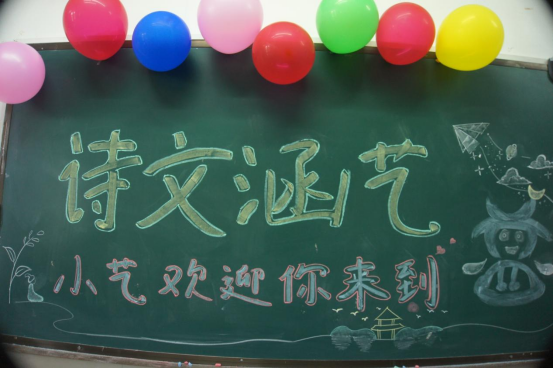 诗文涵艺
小艺欢迎你来到